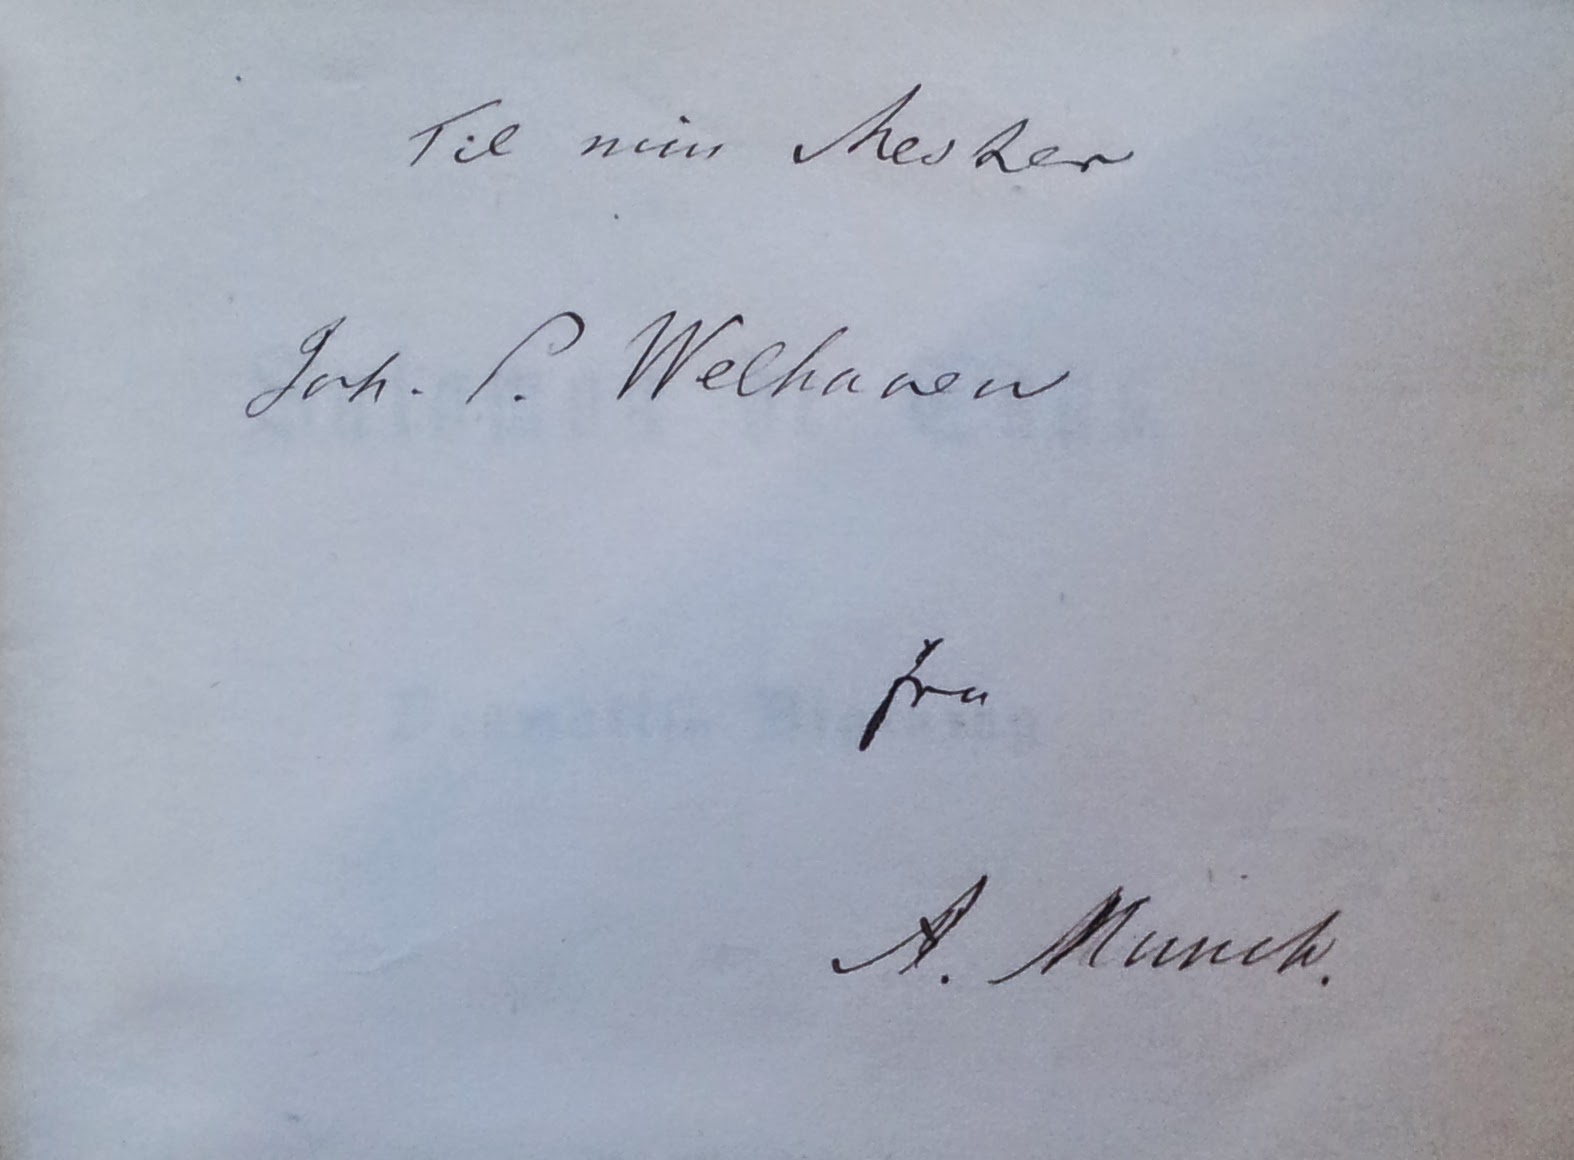 Til min Mester
Joh. S. Welhaven
fra
A. Munch.